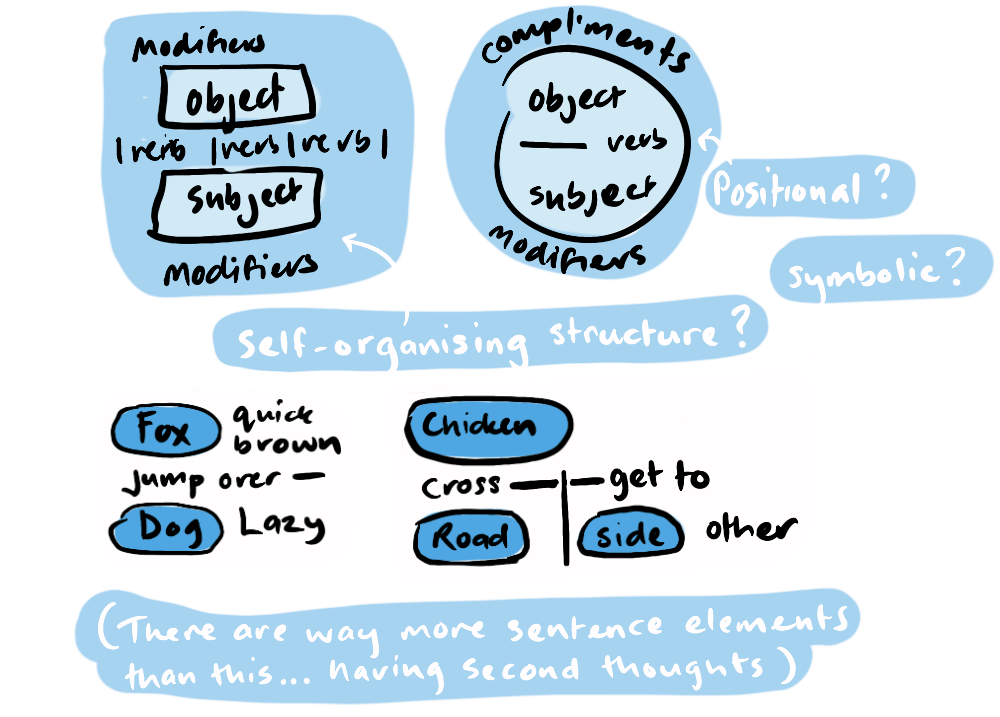 Modifiers
object
|verb |verb|verb|
Subject
Modifiers
compliments
object
— verb
subject
modifiers
Positional?
Symbolic?
Self-organising structure?
Fox quick
brown
Jump over —
Dog Lazy
Chicken
cross — | — get to
Road side other
(There are way more sentence elements
than this... having second thoughts)